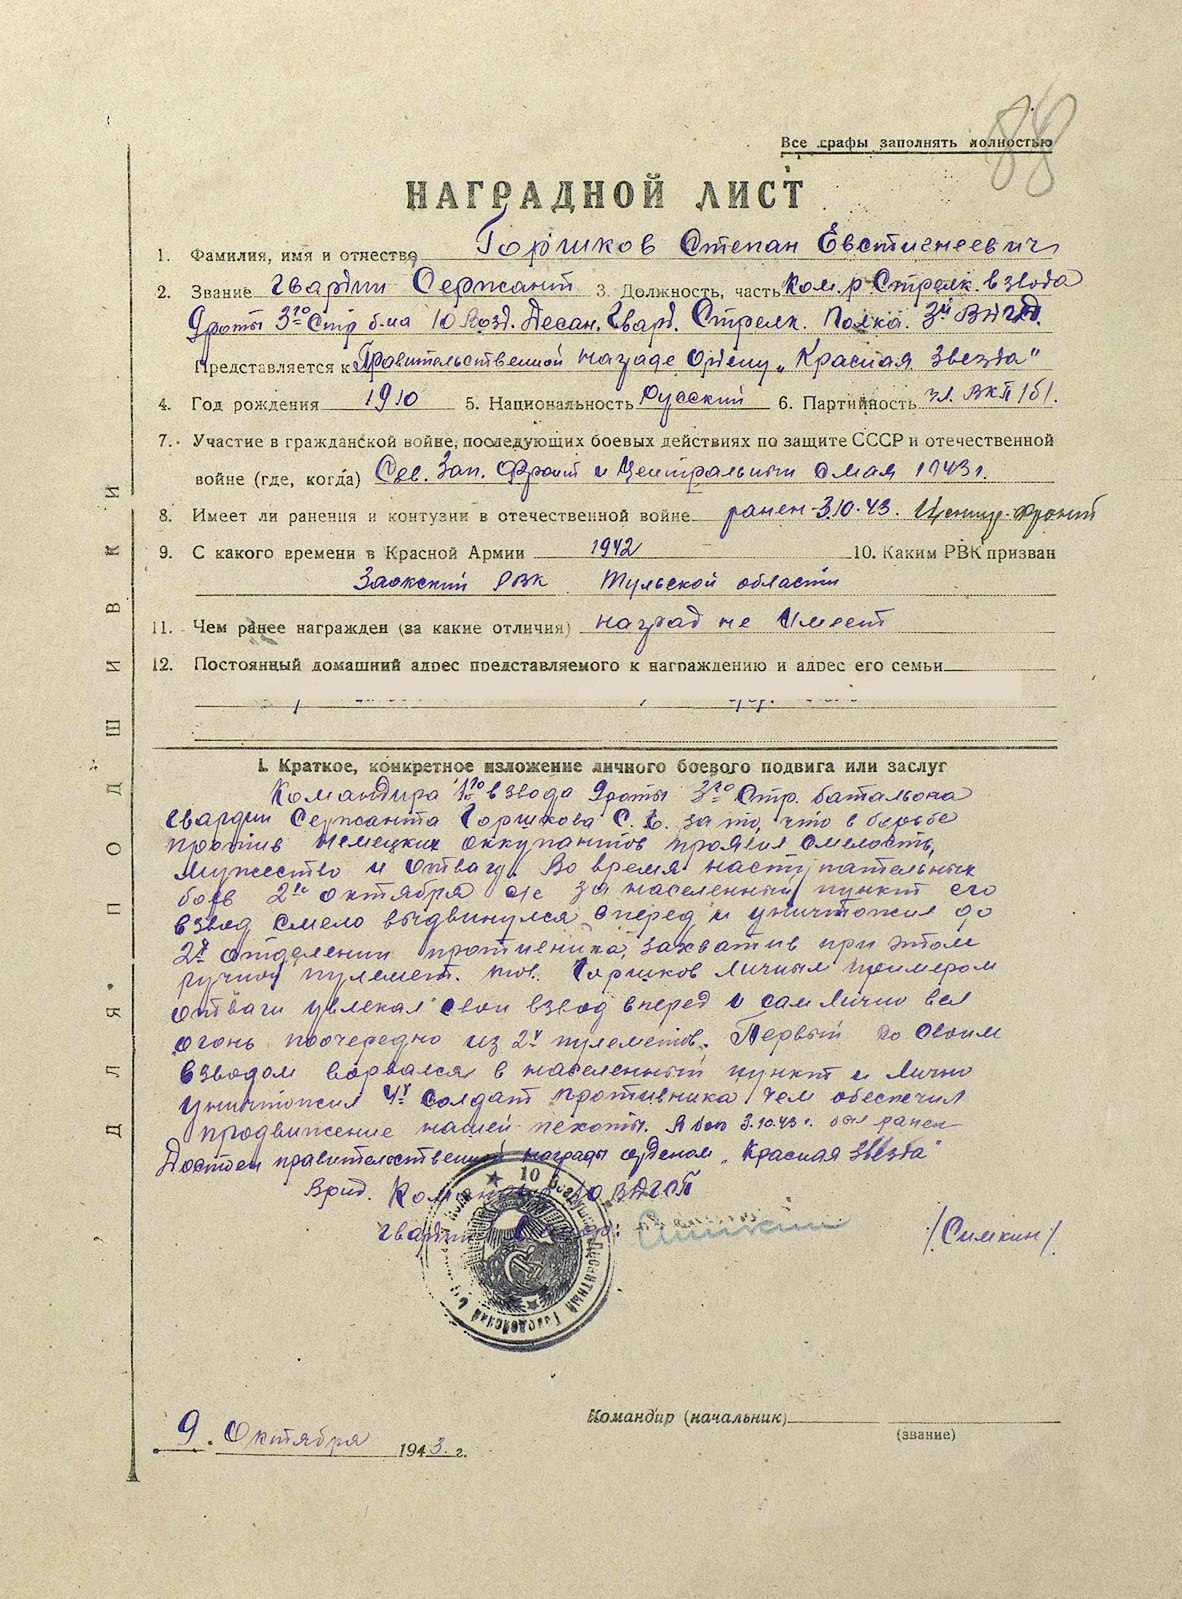 88
Все графы заполнять полностью
НАГРАДНОЙ ЛИСТ
1. Фамилия, имя и отчество Горшков Степан Евстигнеевич
2. Звание гвардии Сержант 3. Должность, часть Ком-р Стрелк. взвода
9 роты 3го Стр б-на 10 Возд. Десан. Гвард. Стрелк. Полка. 3й ВДГД.
Представляется к Правительственной награде Ордену „Красная Звезда"
4. Год рождения 1910 5. Национальность Русский 6. Партийность чл. ВКП/б/.
7. Участие в гражданской войне, последующих боевых действиях по защите СССР и отечественной
войне (где, когда) Сев. Зап. Фронт и Центральный с мая 1943 г.
8. Имеет ли ранения и контузии в отечественной войне ранен 3.10.43. Центр. фронт
9. С какого времени в Красной Армии 1942 10. Каким РВК призван
Заокский РВК Тульской области
11. Чем ранее награжден (за какие отличия) наград не Имеет
12. Постоянный домашний адрес представляемого к награждению и адрес его семьи
I. Краткое, конкретное изложение личного боевого подвига или заслуг
Командира 1го взвода 9 роты 3го Стр. батальона
гвардии Сержанта Горшкова С. Е. за то, что в борьбе
против немецких оккупантов проявил смелость,
мужество и отвагу. Во время наступательных
боев 2го октября с/г за населенный пункт его
взвод смело выдвинулся вперед и уничтожил до
2х отделений противника, захватив при этом
ручной пулемет. тов. Горшков личным примером
отваги увлекал свой взвод вперед и сам лично вел
огонь поочередно из 2х пулеметов. Первый со своим
взводом ворвался в населенный пункт и лично
уничтожил 4х солдат противника, чем обеспечил
продвижение нашей пехоты. В бою 3.10.43 г. был ранен
Достоен правительственной награды орденом „Красная Звезда"
Врид. Командир 10 ВДГСП
гвардии
Симкин /Симкин/
★ 10 Воздушно Десантный Гвардейский
9. Октября 1943. г.
Командир (начальник)
(звание)
ДЛЯ ПОДШИВКИ